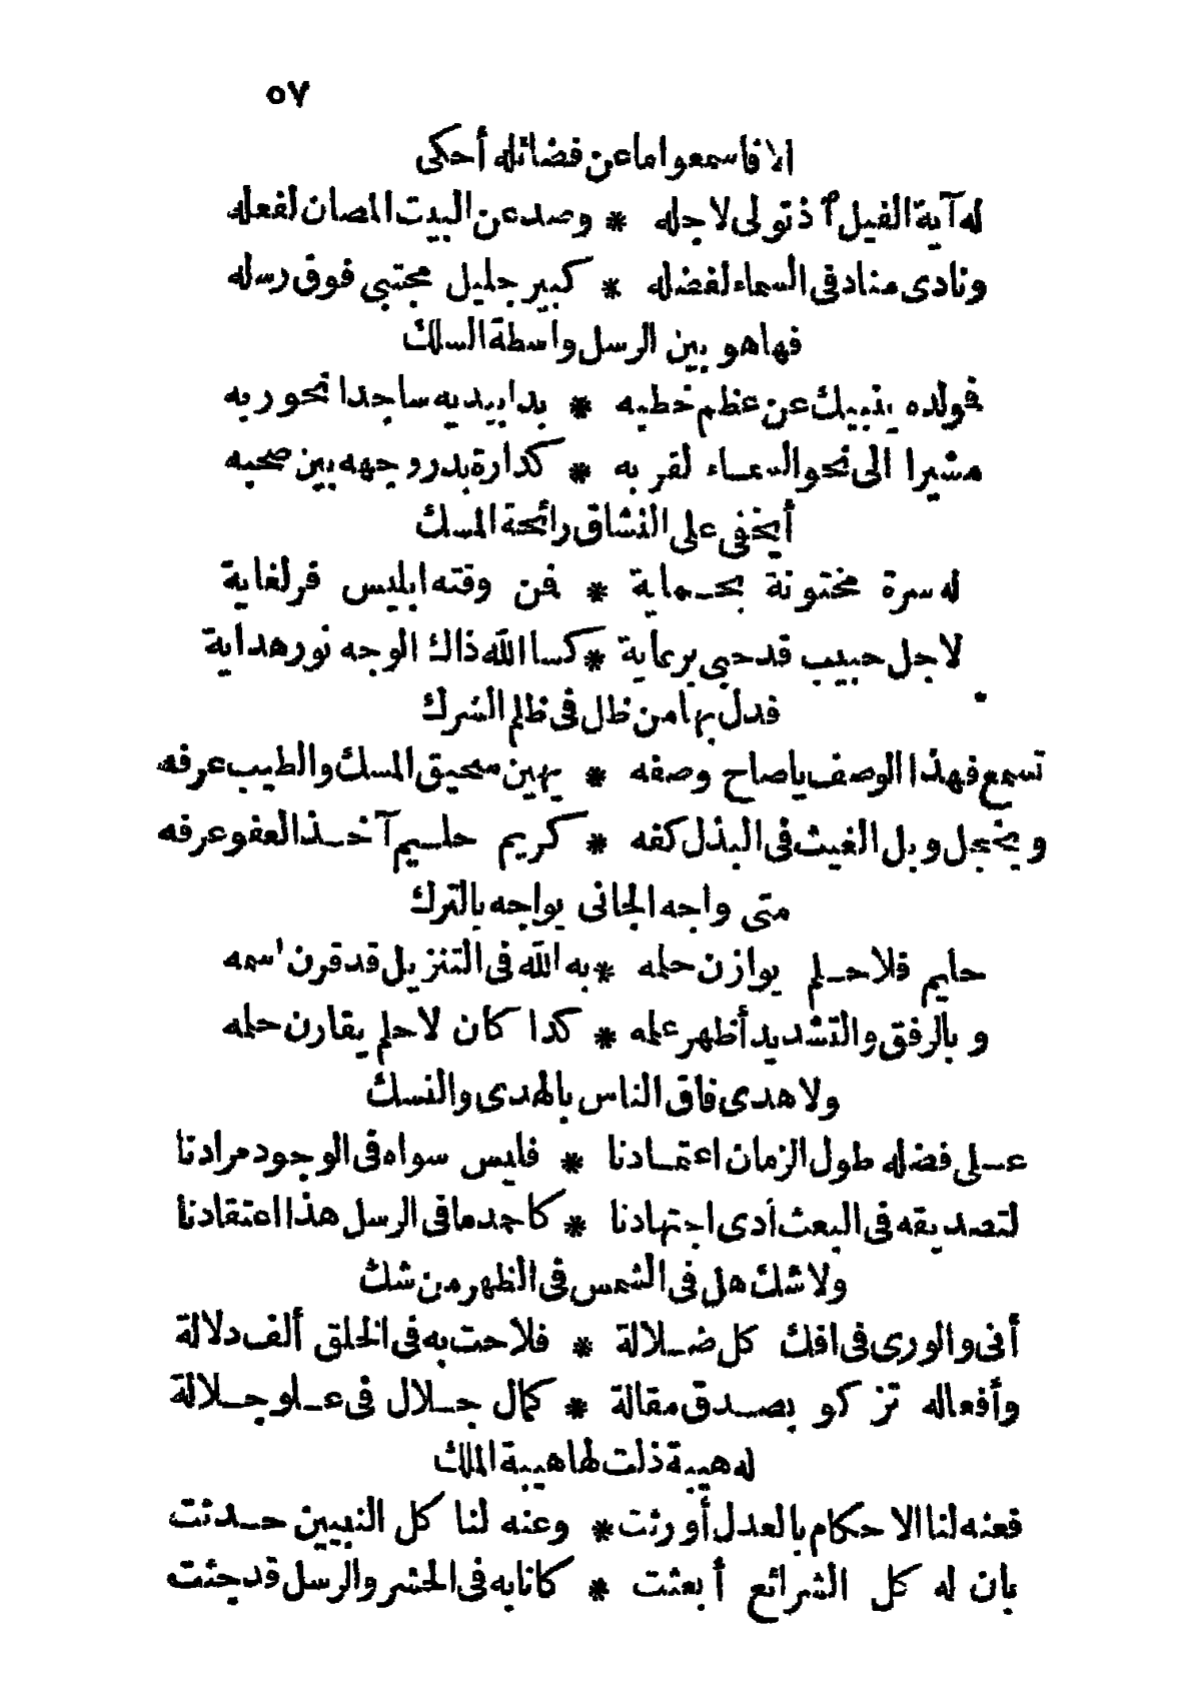 ٥٧
الا فاسمعوا ما عن فضائله أحكى
له آية الفيل اذ تولى لاجله * وصد عن البيت المصان لفعله
ونادى مناد فى السماء لفضله * كبير جليل مجتبى فوق رسله
فها هو بين الرسل واسطة السلك
فمولده ينبيك عن عظم خطبه * بدا بيديه ساجدا نحو ربه
مشيرا الى نحو السماء لقربه * كدارة بدر وجهه بين صحبه
أيخفى على النشاق رائحة المسك
له سرة مختونة بحماية * فمن وقته ابليس فر لغاية
لاجل حبيب قد حبى برعاية * كسا الله ذاك الوجه نور هداية
فدل بها من ظل فى ظلم الشرك
تسمع فهذا الوصف ياصاح وصفه * يهين سحيق المسك والطيب عرفه
ويخجل وبل الغيث فى البذل كفه * كريم حليم آخذ العفو عرفه
متى واجه الجانى يواجه بالترك
حليم فلا حلم يوازن حلمه * به الله فى التنزيل قد قرن اسمه
وبالرفق والتشديد أظهر علمه * كدا كان لا حلم يقارن حلمه
ولا هدى فاق الناس بالهدى والنسك
على فضله طول الزمان اعتمادنا * فليس سواه فى الوجود مرادنا
لتصديقه فى البعث أدى اجتهادنا * كاحمد ما فى الرسل هذا اعتقادنا
ولا شك هل فى الشمس فى الظهر من شك
أنى والورى فى افك كل ضلالة * فلاحت به فى الخلق ألف دلالة
وأفعاله تزكو بصدق مقالة * كمال جلال فى علو جلالة
له هيبة ذلت لها هيبة الملك
فعنه لنا الاحكام بالعدل أورثت * وعنه لنا كل النبيين حدثت
بان له كل الشرائع أبعثت * كانا به فى الحشر والرسل قد جثت